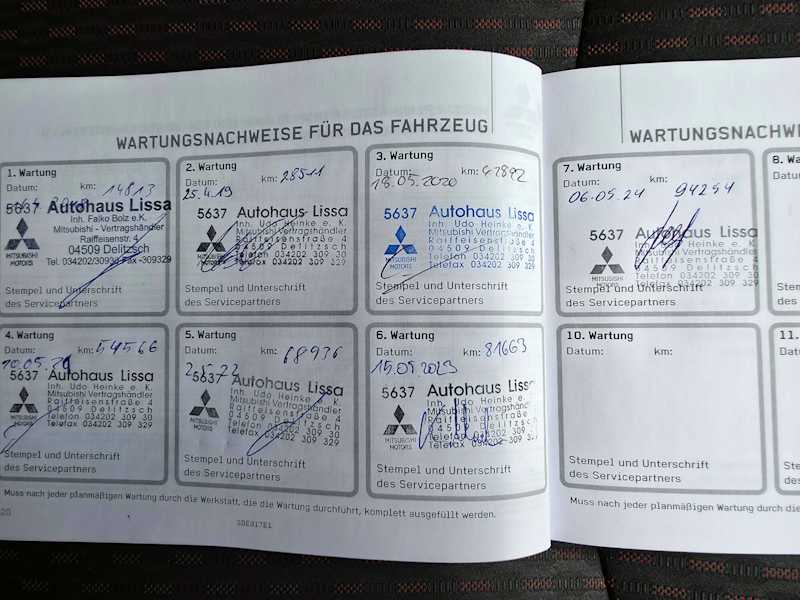 WARTUNGSNACHWEISE FÜR DAS FAHRZEUG
1. Wartung
Datum: km: 14813
5637 Autohaus Lissa
Inh. Falko Bolz e.K.
Mitsubishi - Vertragshändler
Raiffeisenstr. 4
04509 Delitzsch
Tel. 034202/30930 Fax -309329
MITSUBISHI
MOTORS
Stempel und Unterschrift
des Servicepartners
2. Wartung
Datum: km: 28511
25.4.19
5637 Autohaus Lissa
Inh. Udo Heinke e. K.
Mitsubishi Vertragshändler
Raiffeisenstraße 4
04509 Delitzsch
Telefon 034202 309 30
Telefax 034202 309 329
MITSUBISHI
MOTORS
Stempel und Unterschrift
des Servicepartners
3. Wartung
Datum: km: 42892
18.05.2020
5637 Autohaus Lissa
Inh. Udo Heinke e. K.
Mitsubishi Vertragshändler
Raiffeisenstraße 4
04509 Delitzsch
Telefon 034202 309 30
Telefax 034202 309 329
MITSUBISHI
MOTORS
Stempel und Unterschrift
des Servicepartners
4. Wartung
Datum: km: 54566
10.05.21
5637 Autohaus Lissa
Inh. Udo Heinke e. K.
Mitsubishi Vertragshändler
Raiffeisenstraße 4
04509 Delitzsch
Telefon 034202 309 30
Telefax 034202 309 329
MITSUBISHI
MOTORS
Stempel und Unterschrift
des Servicepartners
5. Wartung
Datum: km: 68936
5637 Autohaus Lissa
Inh. Udo Heinke e. K.
Mitsubishi Vertragshändler
Raiffeisenstraße 4
04509 Delitzsch
Telefon 034202 309 30
Telefax 034202 309 329
MITSUBISHI
MOTORS
Stempel und Unterschrift
des Servicepartners
6. Wartung
Datum: km: 81663
15.05.2023
5637 Autohaus Lissa
Inh. Udo Heinke e. K.
Mitsubishi Vertragshändler
Raiffeisenstraße 4
04509 Delitzsch
Telefon 034202 309 30
Telefax 034202 309 329
MITSUBISHI
MOTORS
Stempel und Unterschrift
des Servicepartners
Muss nach jeder planmäßigen Wartung durch die Werkstatt, die die Wartung durchführt, komplett ausgefüllt werden.
20
SDEE17E1
WARTUNGSNACHWE
7. Wartung
Datum: km: 94254
06.05.24
5637 Autohaus Lissa
Inh. Udo Heinke e. K.
Mitsubishi Vertragshändler
Raiffeisenstraße 4
04509 Delitzsch
Telefon 034202 309 30
Telefax 034202 309 329
MITSUBISHI
MOTORS
Stempel und Unterschrift
des Servicepartners
8. Wa
10. Wartung
Datum: km:
Stempel und Unterschrift
des Servicepartners
11.
Muss nach jeder planmäßigen Wartung durch die